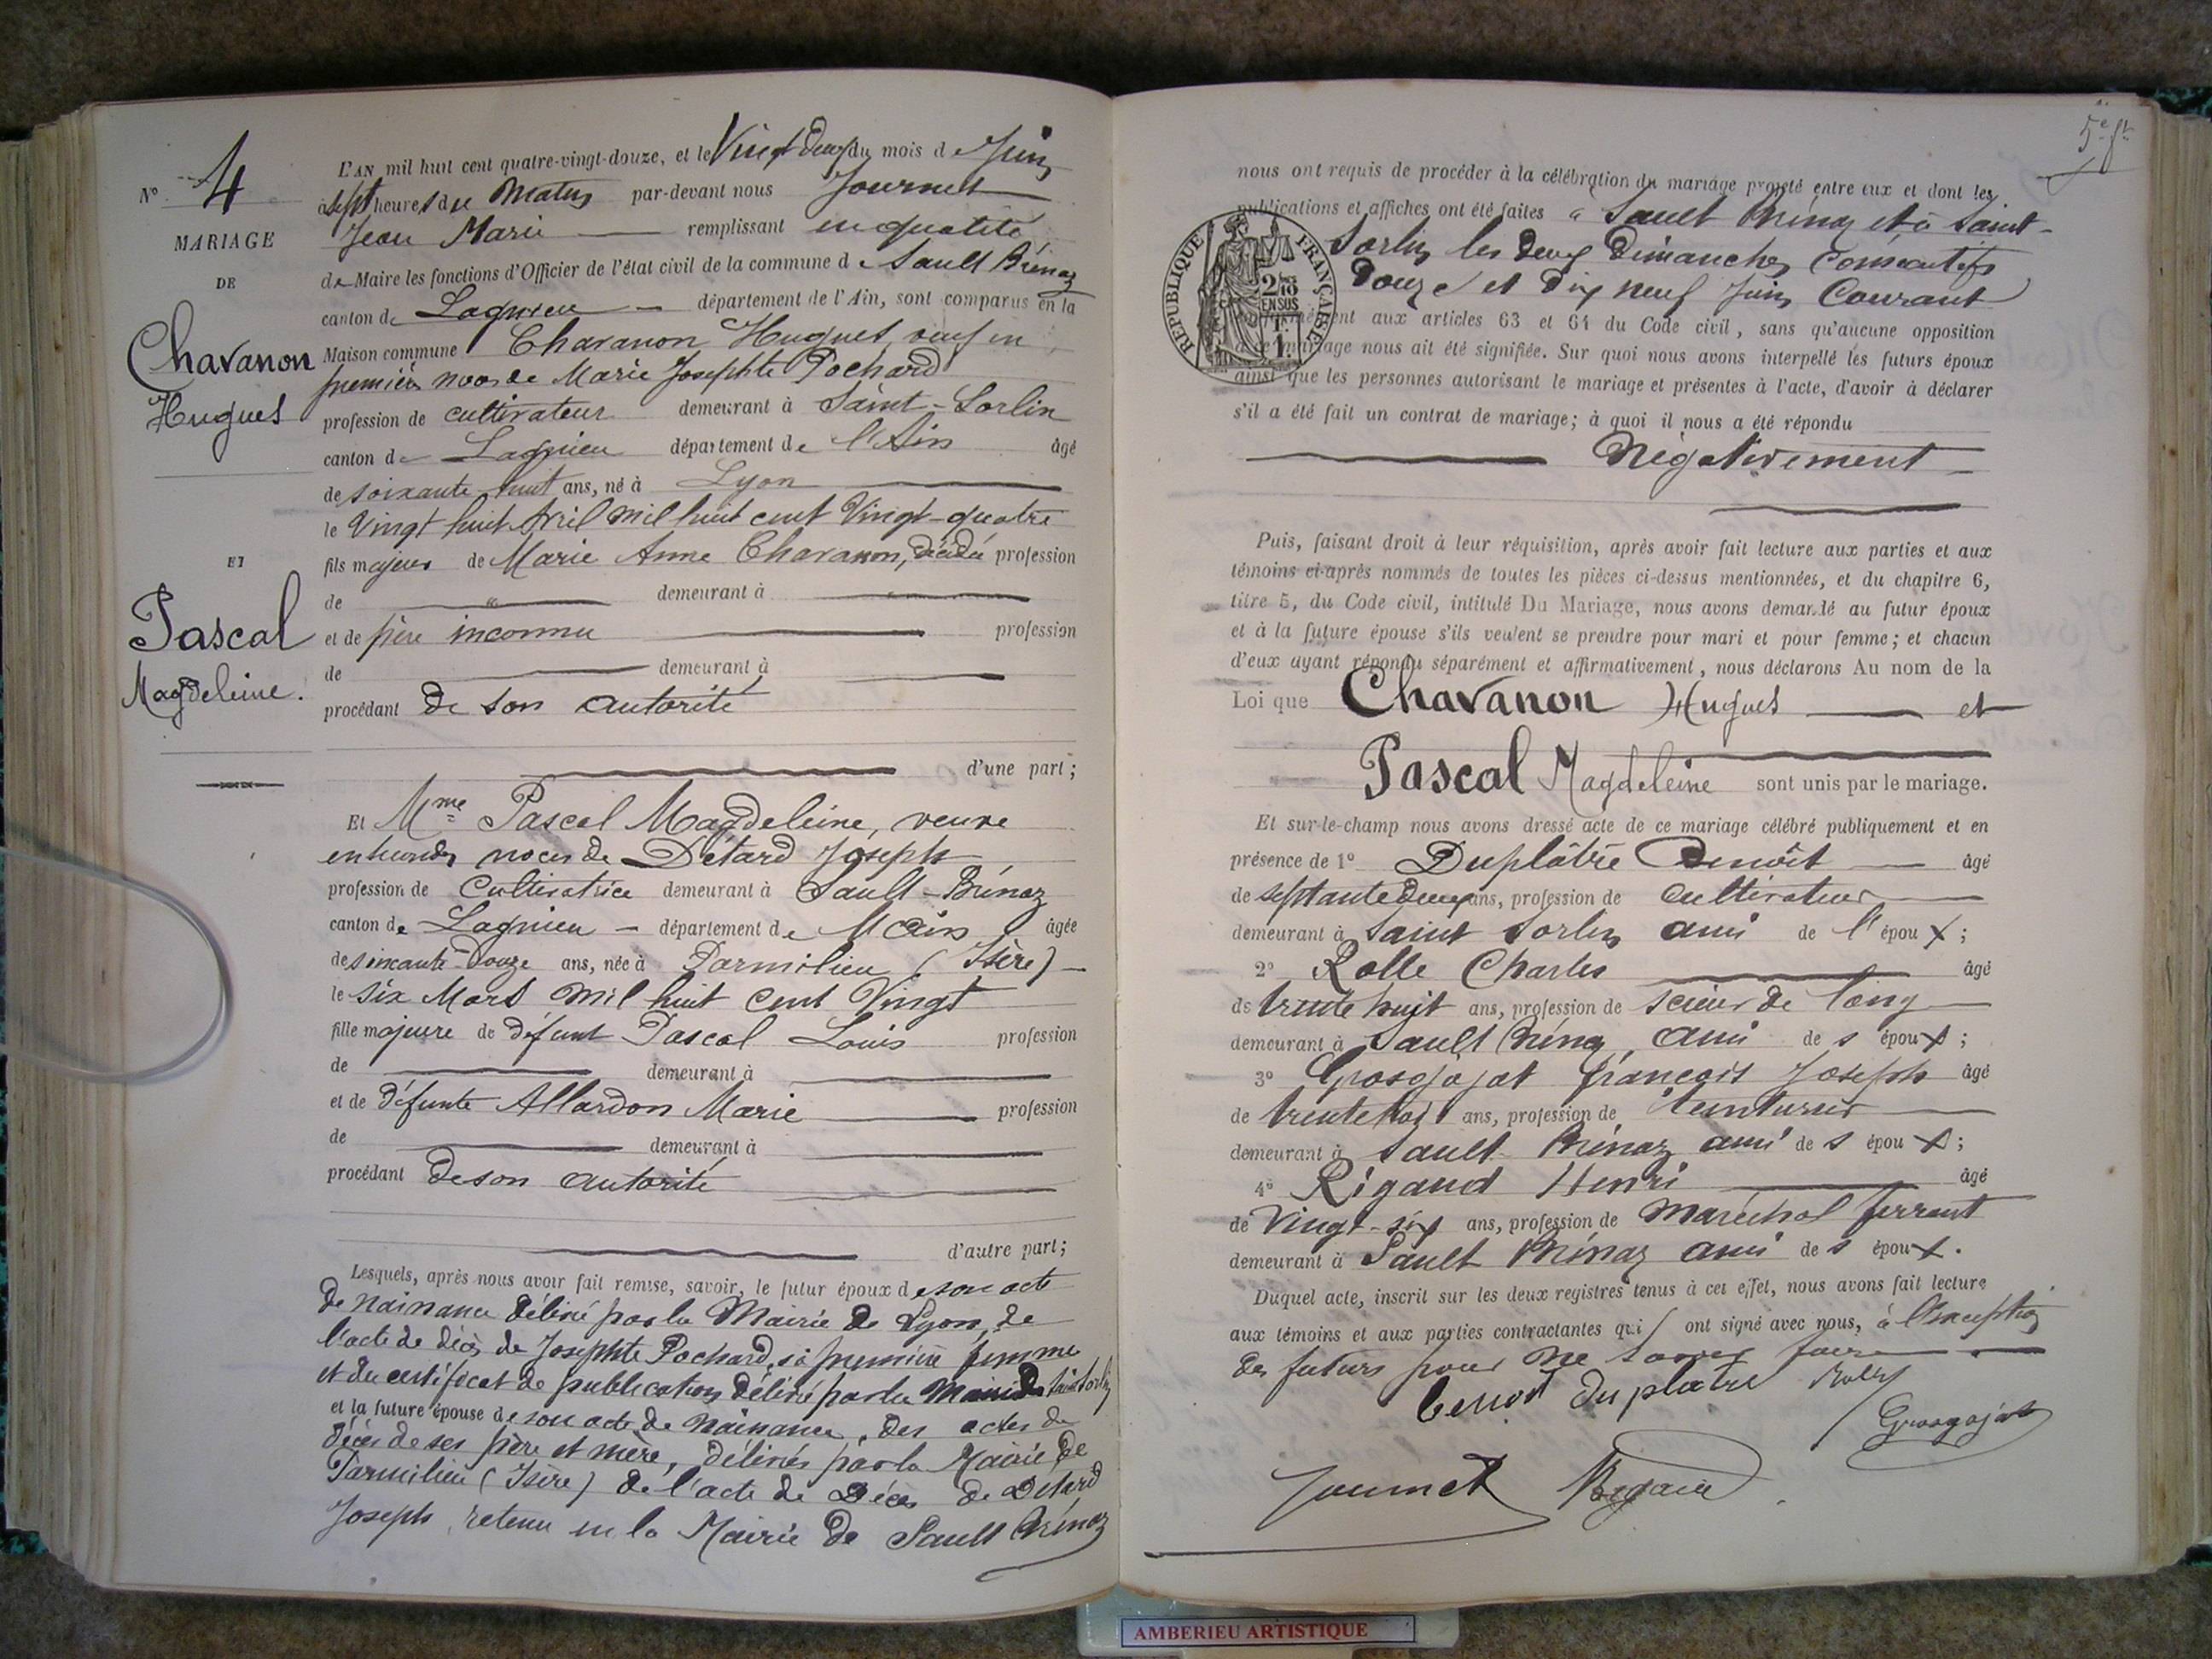 N° 4
MARIAGE
DE
Chavanon
Hugues
ET
Pascal
Magdeleine.
L'AN mil huit cent quatre-vingt-douze, et le Vingt deux du mois de Juin
à sept heures du Matin par-devant nous Journet
Jean Marie remplissant en qualité
de Maire les fonctions d'Officier de l'état civil de la commune de Sault Brénaz
canton de Lagnieu département de l'Ain, sont comparus en la
Maison commune Chavanon Hugues, veuf en
premières noces de Marie Josephte Pochard
profession de cultivateur demeurant à Saint-Sorlin
canton de Lagnieu département de l'Ain âgé
de soixante huit ans, né à Lyon
le Vingt huit Avril mil huit cent Vingt-quatre
fils majeur de Marie Anne Chavanon, décédée profession
de " demeurant à "
et de père inconnu profession
de demeurant à
procédant de son autorité
d'une part;
Et Mme Pascal Magdeleine, veuve
en secondes noces de Détard Joseph
profession de Cultivatrice demeurant à Sault-Brénaz
canton de Lagnieu département de l'Ain âgée
de soixante-douze ans, née à Parmilieu (Isère)
le six Mars mil huit cent Vingt
fille majeure de défunt Pascal Louis profession
de demeurant à
et de défunte Allardon Marie profession
de demeurant à
procédant de son autorité
d'autre part;
Lesquels, après nous avoir fait remise, savoir, le futur époux de son acte
de naissance délivré par la Mairie de Lyon, de
l'acte de décès de Josephte Pochard, sa première femme
et du certificat de publication délivré par la Mairie de Saint Sorlin
et la future épouse de son acte de naissance, des actes de
décès de ses père et mère, délivrés par la Mairie de
Parmilieu (Isère) de l'acte de Décès de Détard
Joseph, retenu en la Mairie de Sault Brénaz
5e ft
nous ont requis de procéder à la célébration du mariage projeté entre eux et dont les
publications et affiches ont été faites à Sault Brénaz et à Saint-
Sorlin les deux Dimanches Consécutifs
Douze et Dix neuf Juin Courant
REPUBLIQUE FRANÇAISE
2/10 EN SUS
conformément aux articles 63 et 64 du Code civil, sans qu'aucune opposition
à ce mariage nous ait été signifiée. Sur quoi nous avons interpellé les futurs époux
ainsi que les personnes autorisant le mariage et présentes à l'acte, d'avoir à déclarer
s'il a été fait un contrat de mariage; à quoi il nous a été répondu
Négativement
Puis, faisant droit à leur réquisition, après avoir fait lecture aux parties et aux
témoins ci-après nommés de toutes les pièces ci-dessus mentionnées, et du chapitre 6,
titre 5, du Code civil, intitulé Du Mariage, nous avons demandé au futur époux
et à la future épouse s'ils veulent se prendre pour mari et pour femme; et chacun
d'eux ayant répondu séparément et affirmativement, nous déclarons Au nom de la
Loi que Chavanon Hugues et
Pascal Magdeleine sont unis par le mariage.
Et sur-le-champ nous avons dressé acte de ce mariage célébré publiquement et en
présence de 1° Duplâtre Benoît âgé
de septante deux ans, profession de cultivateur
demeurant à Saint Sorlin ami de l'époux;
2° Rolle Charles âgé
de trente huit ans, profession de scieur de long
demeurant à Sault Brénaz, ami des époux;
3° Grosgojat françois Joseph âgé
de trente ans, profession de teinturier
demeurant à Sault Brénaz ami des époux;
4° Rigaud Henri âgé
de Vingt-six ans, profession de Maréchal ferrant
demeurant à Sault Brénaz ami des époux.
Duquel acte, inscrit sur les deux registres tenus à cet effet, nous avons fait lecture
aux témoins et aux parties contractantes qui ont signé avec nous, à l'exception
des futurs pour ne savoir faire
benoit duplatre Rolle
Grosgojat
Journet Rigaud
AMBERIEU ARTISTIQUE